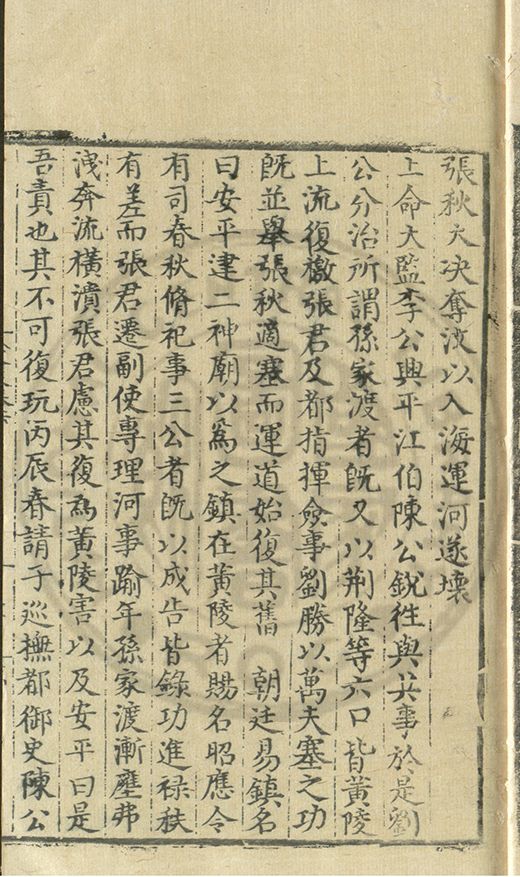 張秋大决奪汶以入海運河遂壞
上命大監李公興平江伯陳公銳徃與共事於是劉
公分治所謂孫家渡者旣又以荆隆等六口皆黄陵
上流復檄張君及都指揮僉事劉勝以萬夫塞之功
旣並舉張秋適塞而運道始復其舊　朝廷易鎮名
曰安平建二神廟以爲之鎮在黄陵者賜名昭應令
有司春秋脩祀事三公者旣以成告皆錄功進禄秩
有差而張君遷副使專理河事踰年孫家渡漸壅弗
洩奔流橫潰張君慮其復爲黄陵害以及安平曰是
吾責也其不可復玩丙辰春請于巡撫都御史陳公